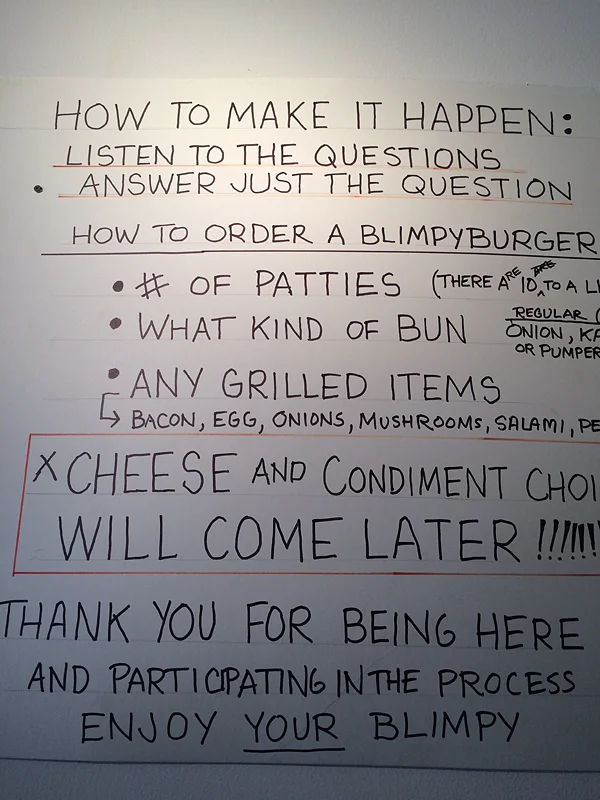 HOW TO MAKE IT HAPPEN:
LISTEN TO THE QUESTIONS
• ANSWER JUST THE QUESTION
HOW TO ORDER A BLIMPYBURGER
• # OF PATTIES (THERE ARE 10, TO A
• WHAT KIND OF BUN REGULAR
ONION,
OR
• ANY GRILLED ITEMS
→ BACON, EGG, ONIONS, MUSHROOMS, SALAMI,
X CHEESE AND CONDIMENT
WILL COME LATER !!!!!!!
THANK YOU FOR BEING HERE
AND PARTICIPATING IN THE PROCESS
ENJOY YOUR BLIMPY